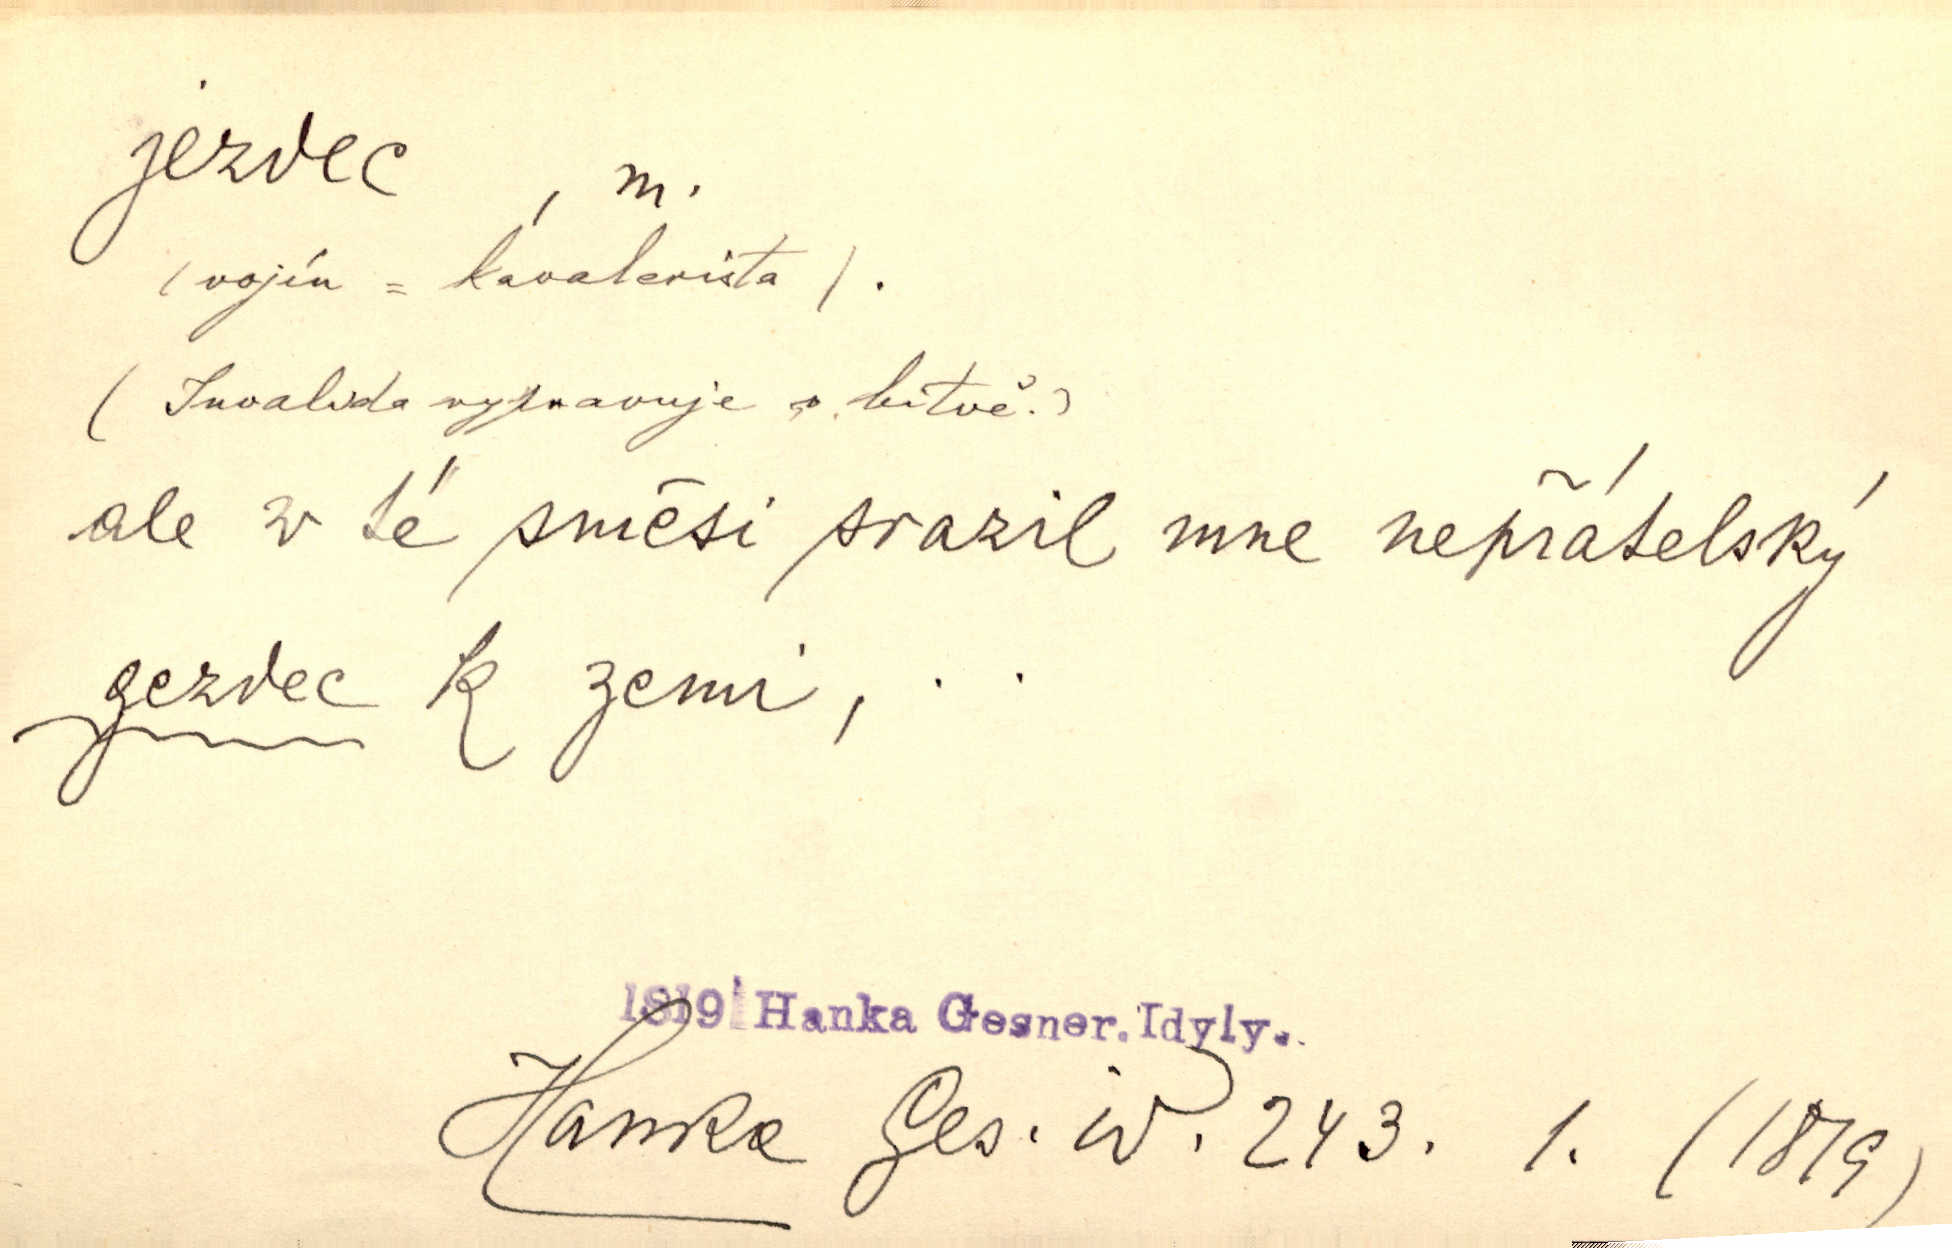 jezdec , m.
(vojín = kavalerista).
(Invalida vypravuje o bitvě.)
ale w té směsi srazil mne nepřátelský
gezdec k zemi, . .
1819 Hanka Gesner. Idyly.
Hanka Ges. id. 243. 1. (1819)